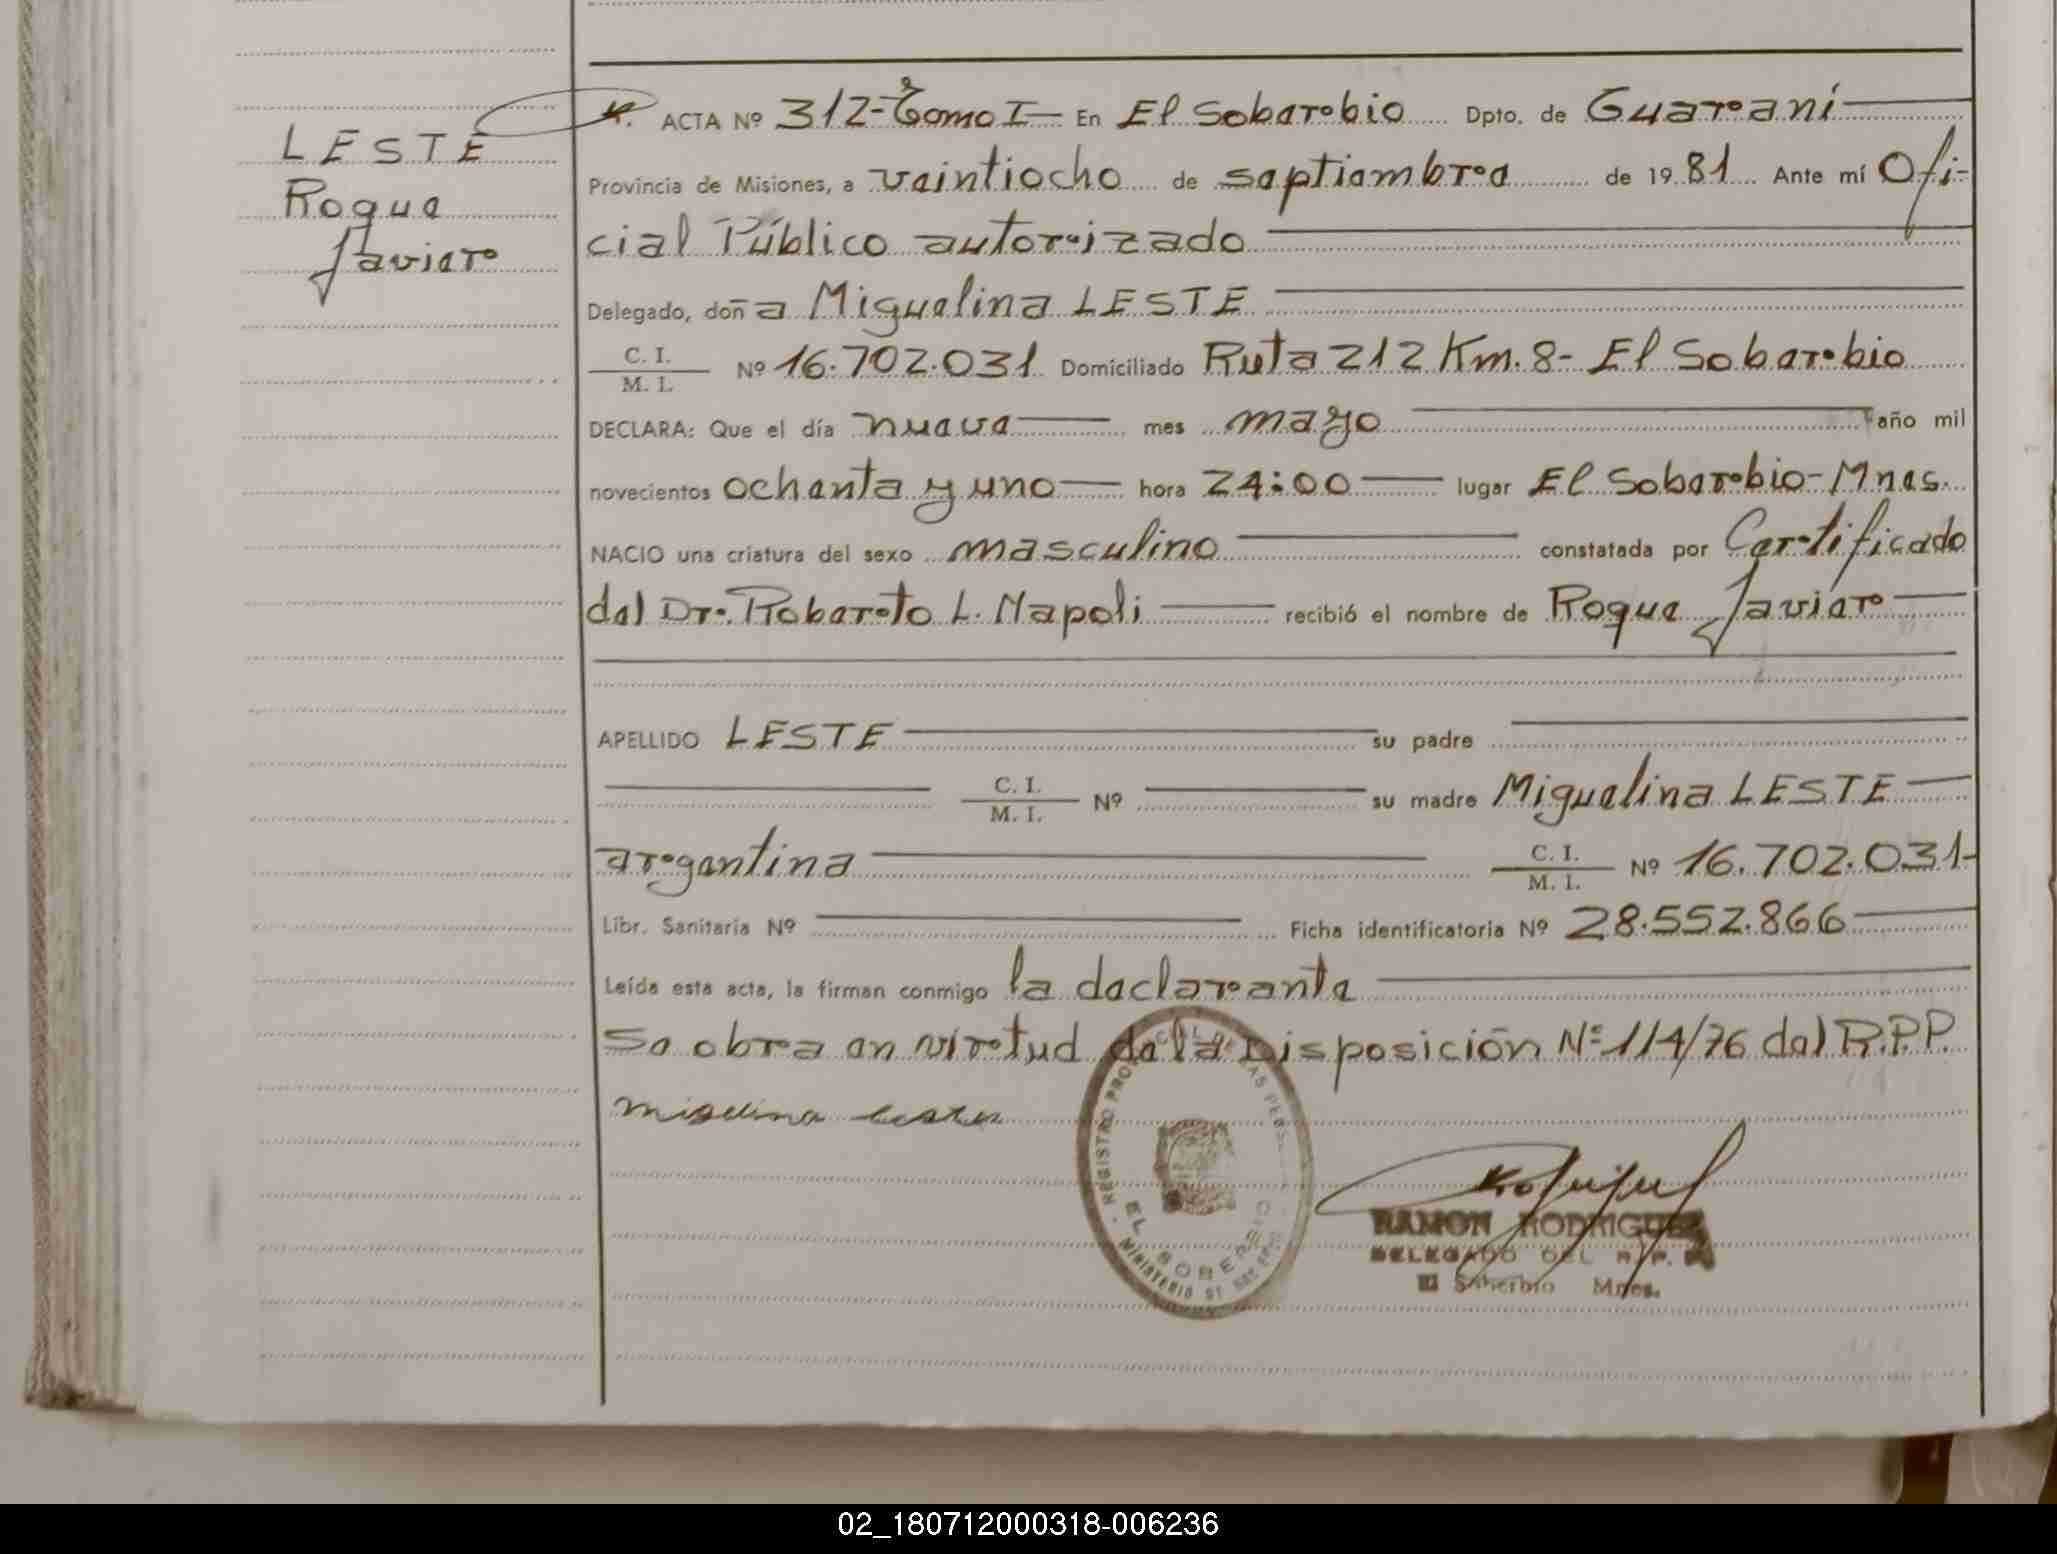 LESTE
Roque
Javier
ACTA Nº 312-Tomo I- En El Soberbio Dpto. de Guaraní
Provincia de Misiones, a veintiocho de septiembre de 1981 Ante mí Ofi-
cial Público autorizado
Delegado, doña Miguelina LESTE
C. I.
M. I. Nº 16.702.031 Domiciliado Ruta 212 Km. 8- El Soberbio
DECLARA: Que el día nueve mes mayo año mil
novecientos ochenta y uno hora 24:00 lugar El Soberbio-Mnes.
NACIO una criatura del sexo masculino constatada por Certificado
del Dr. Roberto L. Napoli recibió el nombre de Roque Javier
APELLIDO LESTE su padre
C. I.
M. I. Nº su madre Miguelina LESTE
argentina C. I.
M. I. Nº 16.702.031-
Libr. Sanitaria Nº Ficha identificatoria Nº 28.552.866
Leída esta acta, la firman conmigo la declarante
Se obra en virtud de la Disposición Nº 114/76 del R.P.P.
miselina leste
REGISTRO PROVINCIAL DE LAS PERS.
EL SOBERBIO
MINISTERIO
RAMON RODRIGUEZ
DELEGADO DEL R.P.P.
El Soberbio Mnes.
02_180712000318-006236